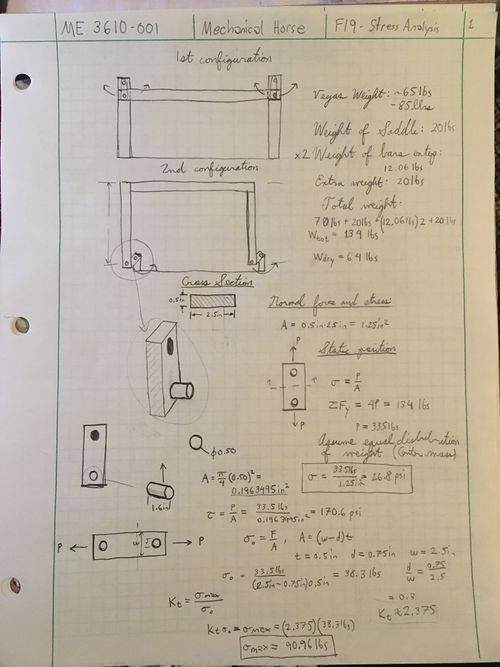 ME 3610-001 Mechanical Horse F19 - Stress Analysis 1
1st configuration
Vegas Weight: ~65lbs
-85lbs
Weight of Saddle: 20lbs
x2 Weight of bars on top:
12.06lbs
Extra weight: 20lbs
Total weight:
70lbs + 20lbs + (12.06lbs)2 + 20lbs
Wtot = 134 lbs
Wdry = 64 lbs
2nd configuration
Cross Section
0.5in
2.5in
Normal force and stress
A = 0.5in·2.5in = 1.25in²
Static position
P
P
σ = P/A
ΣFy = 4P = 134 lbs
P = 33.5lbs
Assume equal distribution
of weight (Center mass)
σ = 33.5lbs/1.25in² = 26.8 psi
1.6in
φ0.50
A = π/4 (0.50)² =
0.1963495in²
τ = P/A = 33.5lbs/0.1963495in² = 170.6 psi
P w d P
σ₀ = F/A , A = (w-d)t
t = 0.5in d = 0.75in w = 2.5in
σ₀ = 33.5lbs/(2.5in - 0.75in)0.5in = 38.3lbs
d/w = 0.75/2.5
= 0.3
Kt ≈ 2.375
Kt = σmax/σ₀
Ktσ₀ = σmax = (2.375)(38.3lbs)
σmax = 90.96lbs